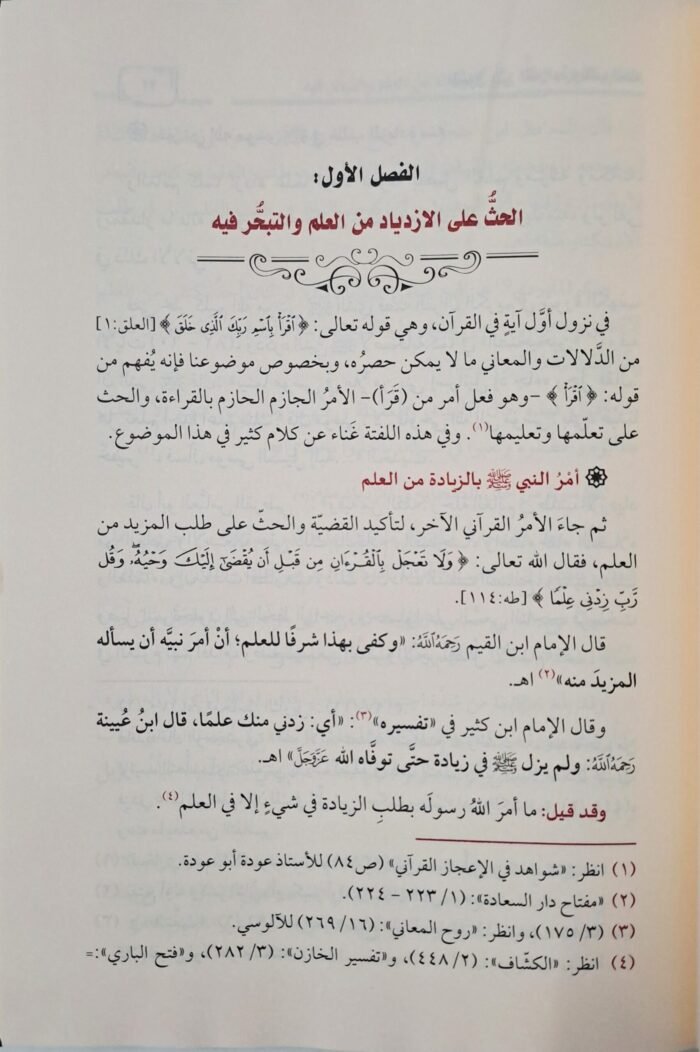 الفصل الأول:
الحثُّ على الازدياد من العلم والتبحُّر فيه
في نزول أوَّل آيةٍ في القرآن، وهي قوله تعالى: ﴿ ٱقْرَأْ بِٱسْمِ رَبِّكَ ٱلَّذِى خَلَقَ ﴾ [العلق:١]
من الدَّلالات والمعاني ما لا يمكن حصرُه، وبخصوص موضوعنا فإنه يُفهم من
قوله: ﴿ ٱقْرَأْ ﴾ -وهو فعل أمر من (قَرَأ)- الأمرُ الجازم الحازم بالقراءة، والحث
على تعلّمها وتعليمها(١). وفي هذه اللفتة غَناء عن كلام كثير في هذا الموضوع.
أمْرُ النبي ﷺ بالزيادة من العلم
ثم جاءَ الأمرُ القرآني الآخر، لتأكيد القضيّة والحثّ على طلب المزيد من
العلم، فقال الله تعالى: ﴿ وَلَا تَعْجَلْ بِٱلْقُرْءَانِ مِن قَبْلِ أَن يُقْضَىٰٓ إِلَيْكَ وَحْيُهُۥ ۖ وَقُل
رَّبِّ زِدْنِى عِلْمًا ﴾ [طه:١١٤].
قال الإمام ابن القيم رَحِمَهُ ٱللَّهُ: «وكفى بهذا شرفًا للعلم؛ أنْ أمرَ نبيَّه أن يسأله
المزيدَ منه»(٢) اهـ.
وقال الإمام ابن كثير في «تفسيره»(٣): «أي: زدني منك علمًا، قال ابنُ عُيينة
رَحِمَهُ ٱللَّهُ: ولم يزل ﷺ في زيادة حتَّى توفَّاه الله عَزَّوَجَلَّ» اهـ.
وقد قيل: ما أمرَ اللهُ رسولَه بطلبِ الزيادة في شيءٍ إلا في العلم(٤).
(١) انظر: «شواهد في الإعجاز القرآني» (ص٨٤) للأستاذ عودة أبو عودة.
(٢) «مفتاح دار السعادة»: (١/ ٢٢٣ - ٢٢٤).
(٣) (٣/ ١٧٥)، وانظر: «روح المعاني»: (١٦/ ٢٦٩) للآلوسي.
(٤) انظر: «الكشّاف»: (٢/ ٤٤٨)، و«تفسير الخازن»: (٣/ ٢٨٢)، و«فتح الباري»:=